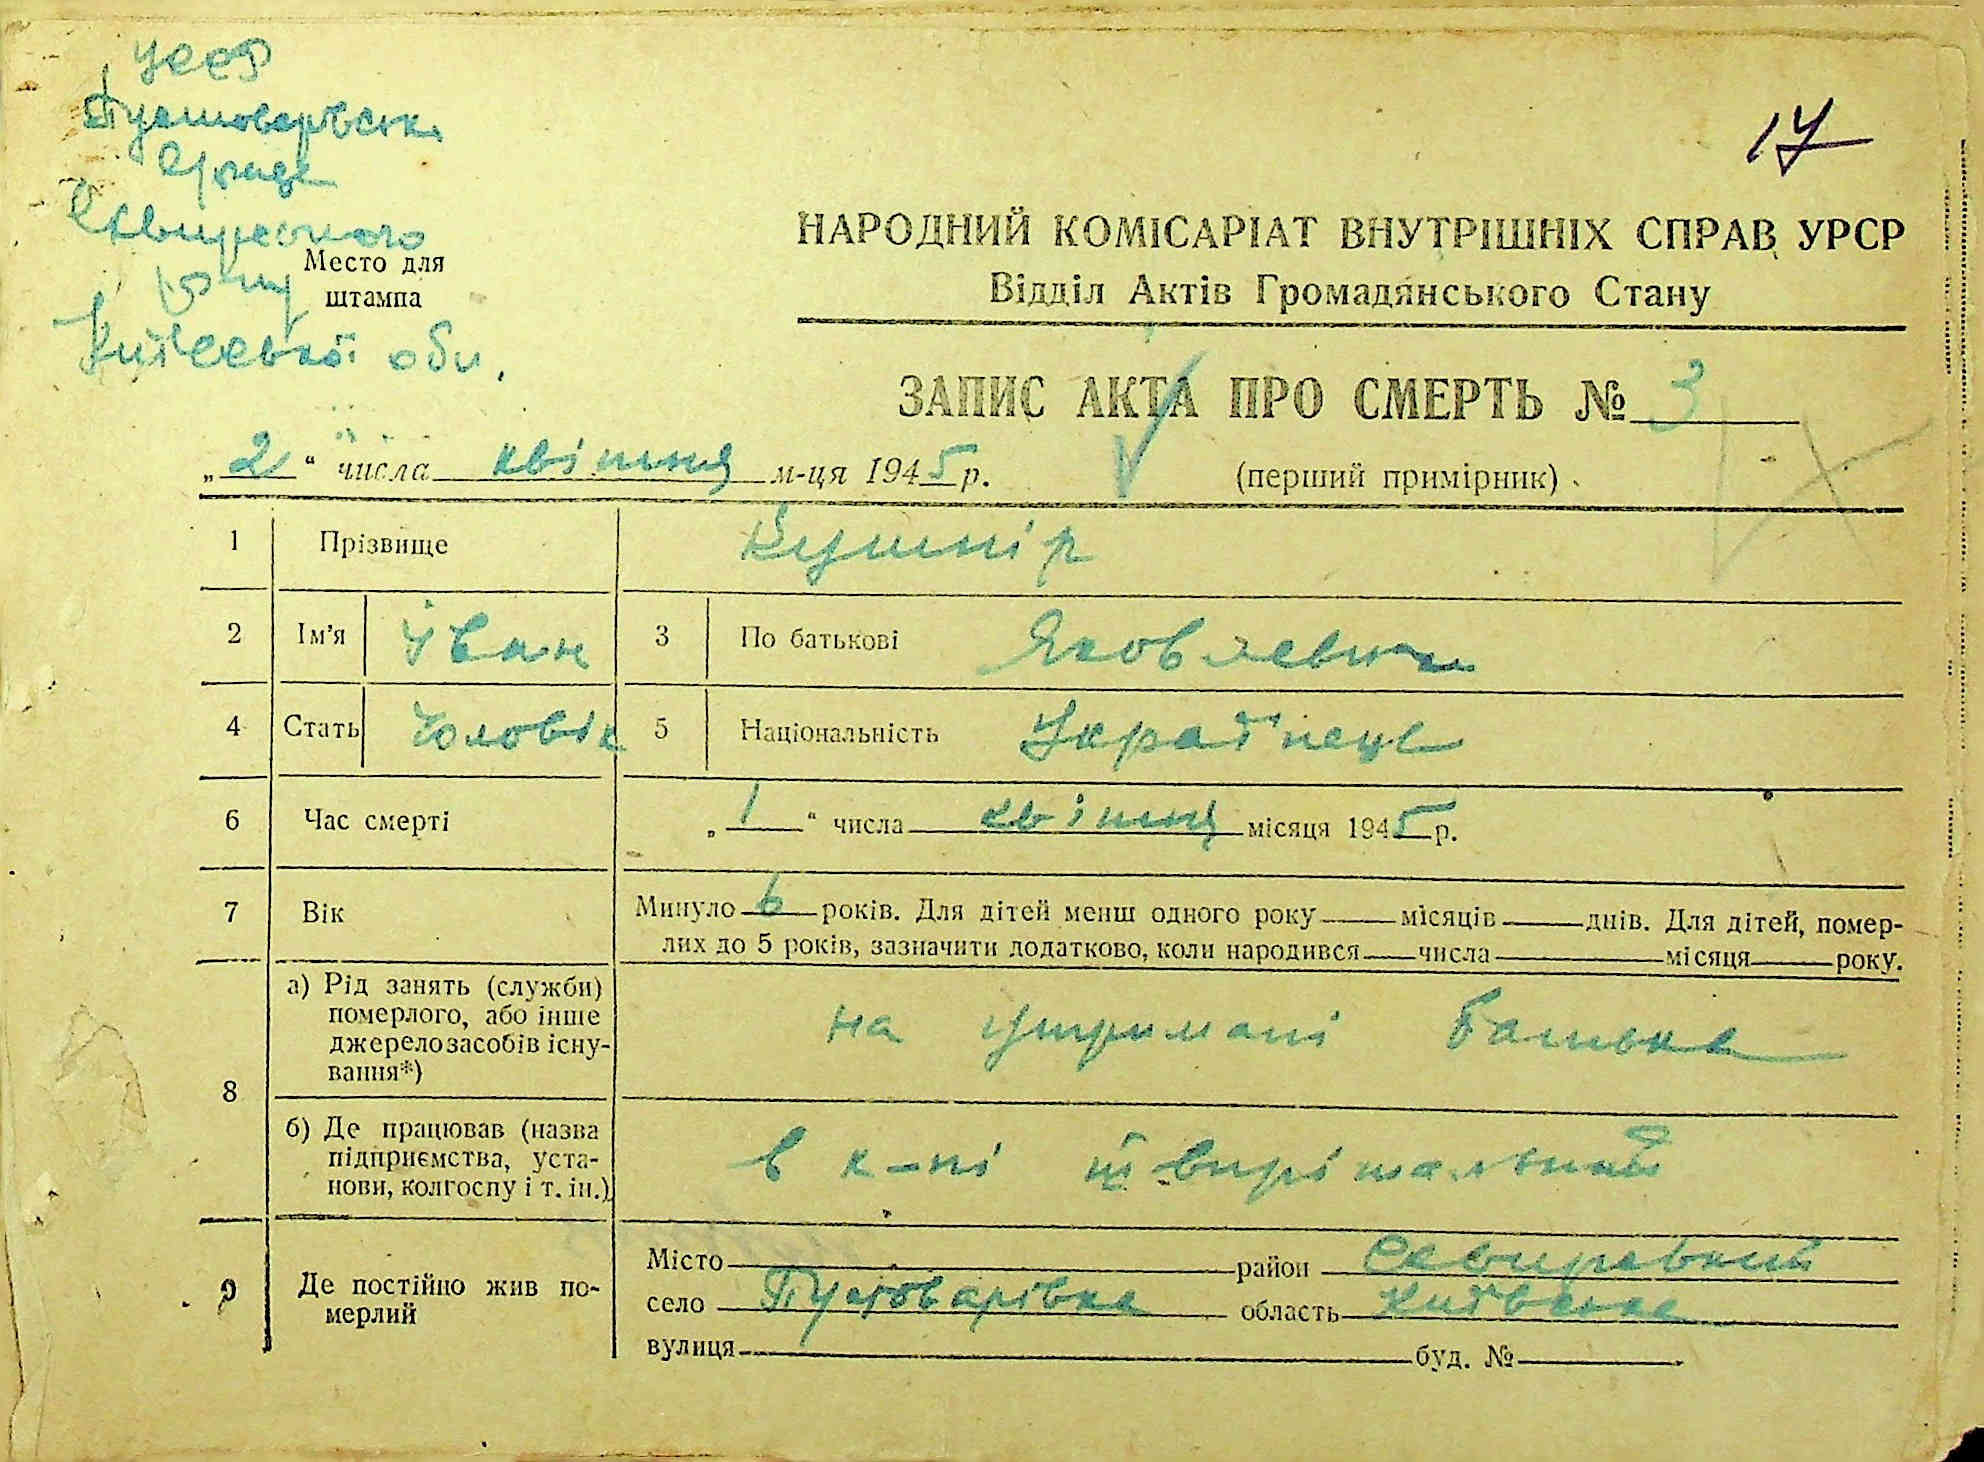 УССР
Пустоварівська
Сільрада
Сквирского
р-ну
Київської обл.
Место для
штампа
17
НАРОДНИЙ КОМІСАРІАТ ВНУТРІШНІХ СПРАВ УРСР
Відділ Актів Громадянського Стану
ЗАПИС АКТА ПРО СМЕРТЬ № 3
„2“ числа квітня м-ця 1945 р.
(перший примірник)
1 Прізвище Кушнір
2 Ім'я Іван 3 По батькові Яковлевич
4 Стать Чоловік 5 Національність Українець
6 Час смерті „1“ числа квітня місяця 1945 р.
7 Вік Минуло 6 років. Для дітей менш одного року місяців днів. Для дітей, помер-
лих до 5 років, зазначити додатково, коли народився числа місяця року.
8 а) Рід занять (служби)
померлого, або інше
джерело засобів існу-
вання*)
на утримані батька
б) Де працював (назва
підприємства, уста-
нови, колгоспу і т. ін.)
в к-пі
9 Де постійно жив по-
мерлий
Місто район Сквирський
село Пустоварівка область Київська
вулиця буд. №